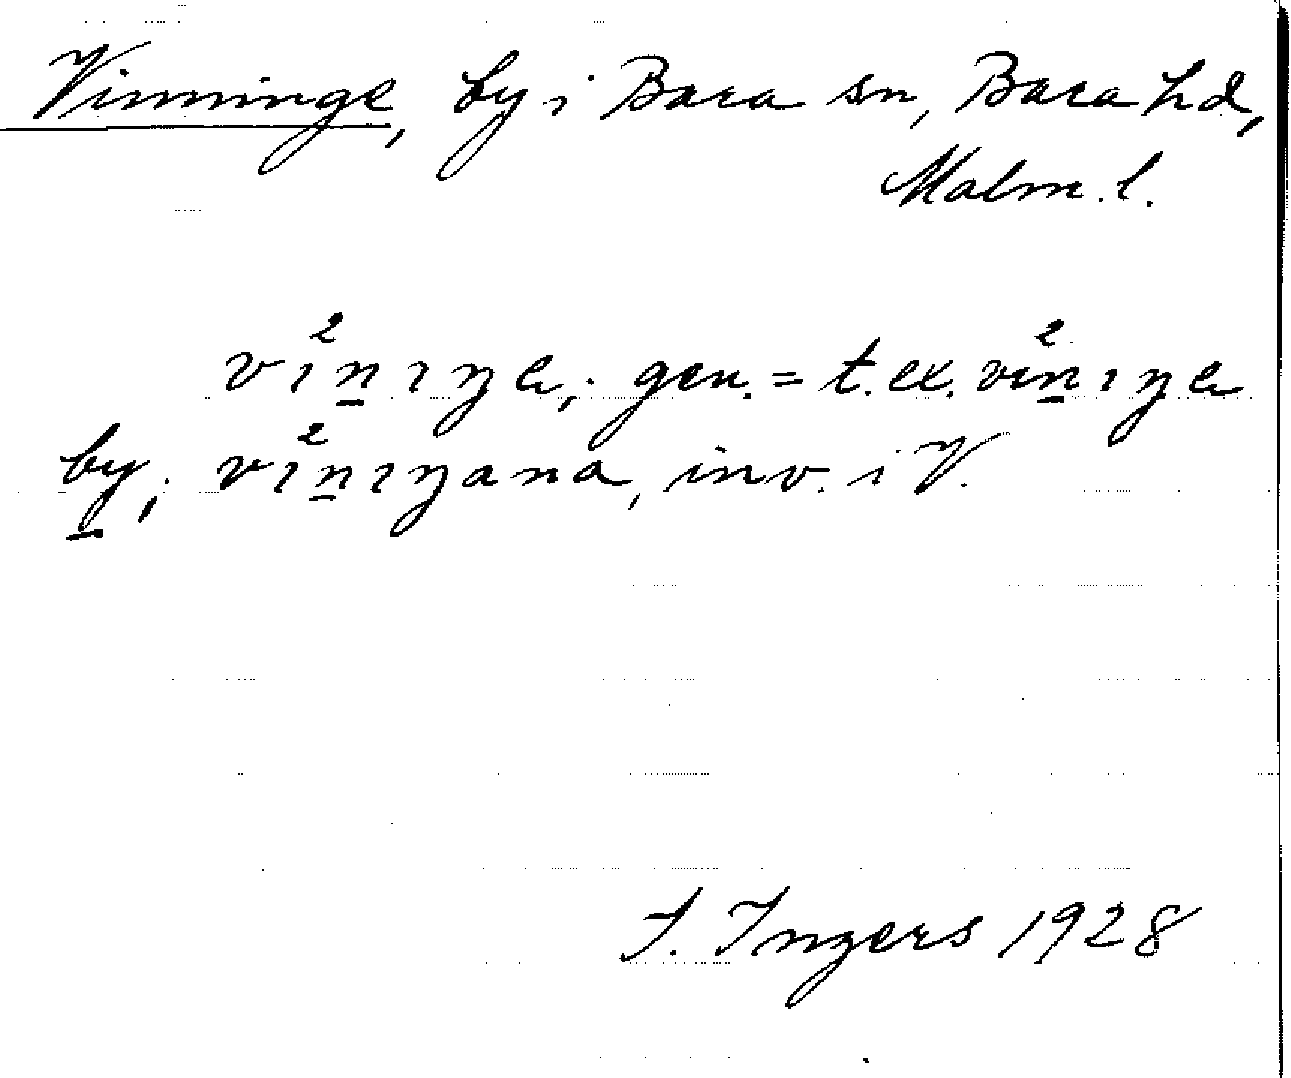 Vinninge, by i Bara sn, Bara hd,
Malm. l.
vı²n̲ıŋə; gen. = t.ex. vı²n̲ıŋə
by̲; vı²n̲ıŋana, inv. i V.
I. Ingers 1928